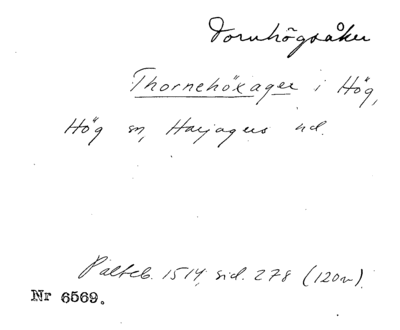 Tornhögsåker
Thornehöxager i Hög,
Hög sn, Harjagers hd.
Palteb. 1514, sid. 278 (120v).
Nr 6569.